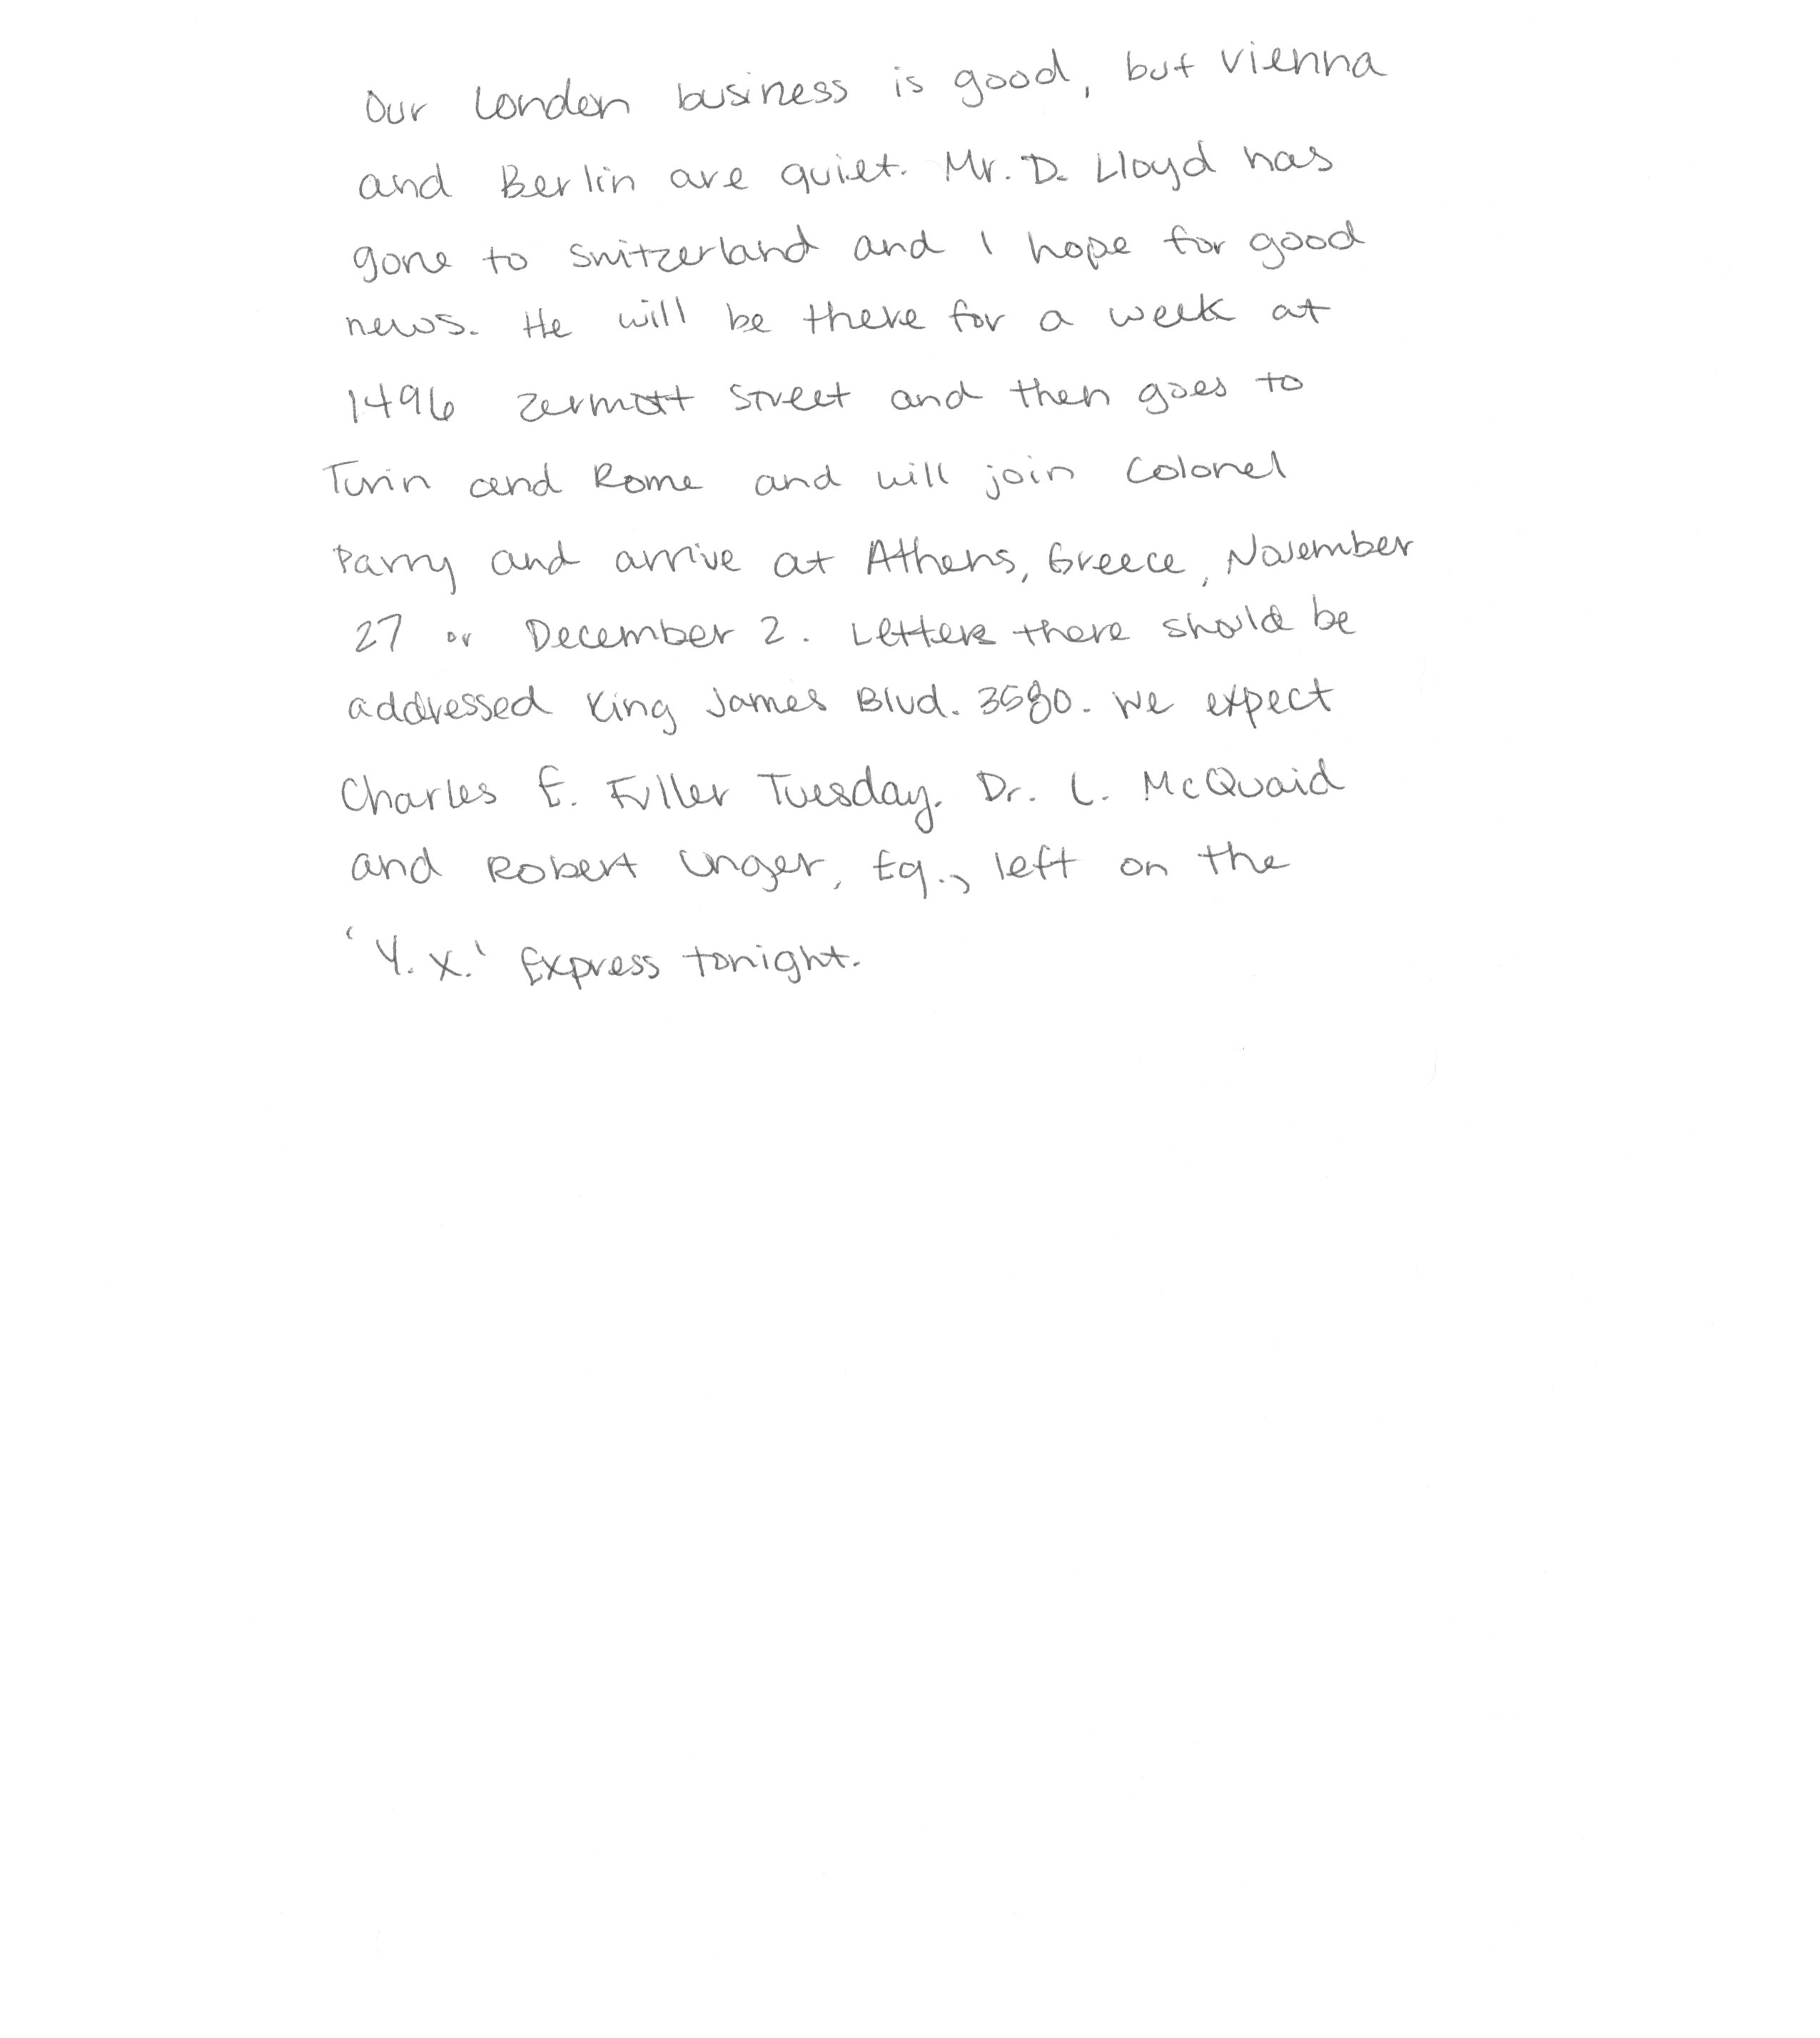 Our London business is good, but Vienna
and Berlin are quiet. Mr. D. Lloyd has
gone to Switzerland and I hope for good
news. He will be there for a week at
1496 Zermott Street and then goes to
Turin and Rome and will join Colonel
Parry and arrive at Athens, Greece, November
27 or December 2. Letters there should be
addressed King James Blvd. 3580. We expect
Charles E. Fuller Tuesday. Dr. L. McQuaid
and Robert Unger, Eq., left on the
'Y. X.' Express tonight.